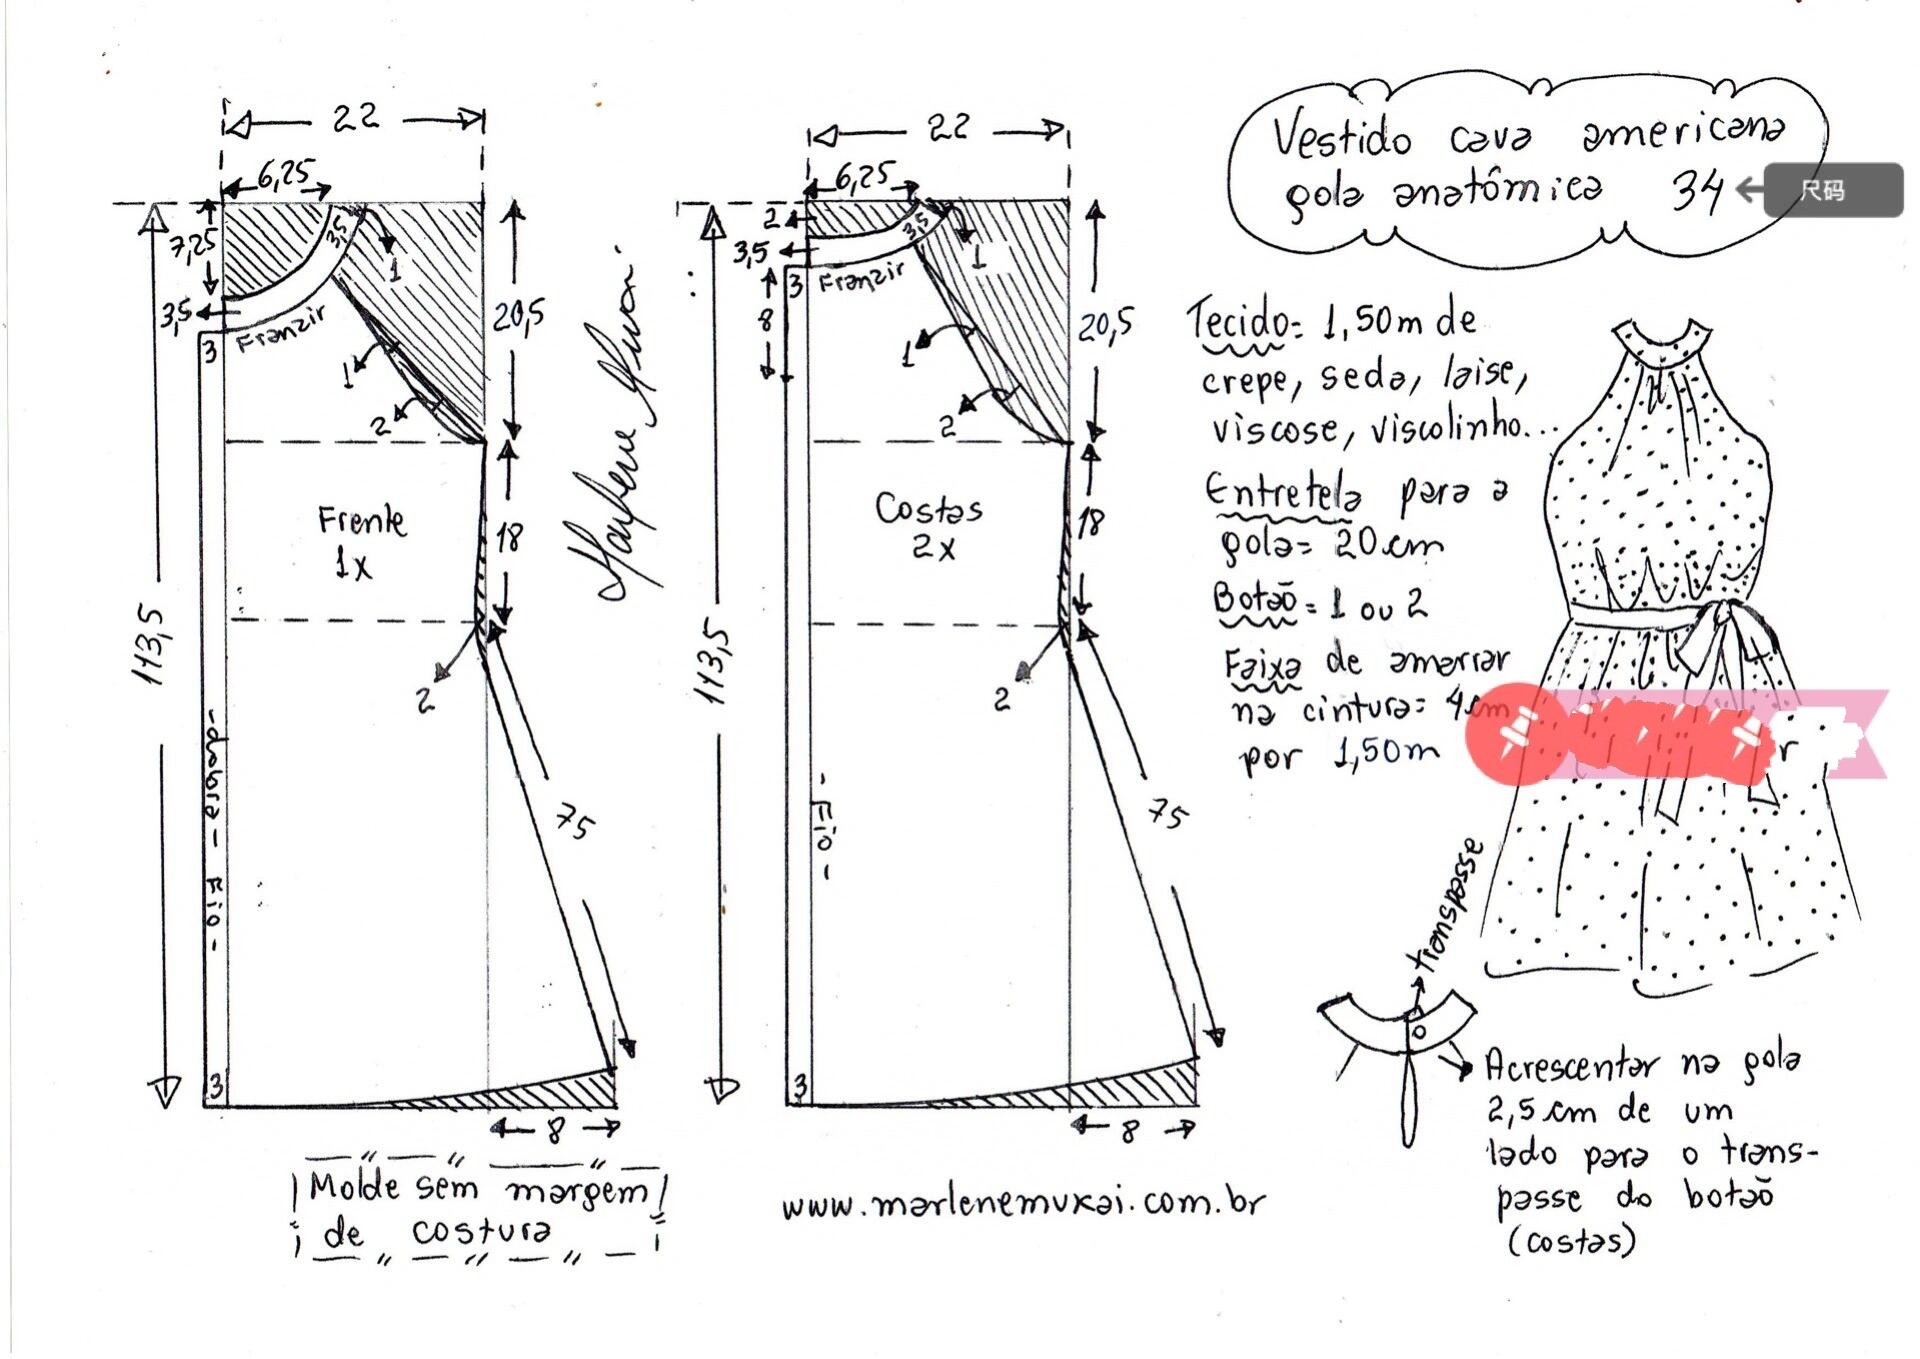 22
6,25
7,25
3,5
1
3,5
3
Franzir
20,5
1
2
Frente
1x
18
2
113,5
75
- dobra - Fio -
3
8
Molde sem margem
de costura
22
6,25
2
3,5
3,5
1
3
Franzir
8
20,5
1
2
Costas
2x
18
2
113,5
75
- Fio -
3
8
www.marlenemukai.com.br
Vestido cava americana
gola anatômica 34
尺码
Tecido= 1,50m de
crepe, seda, laise,
viscose, viscolinho...
Entretela para a
gola= 20cm
Botão= 1 ou 2
Faixa de amarrar
na cintura= 4cm
por 1,50m
r
transpasse
Acrescentar na gola
2,5cm de um
lado para o trans-
passe do botão
(costas)